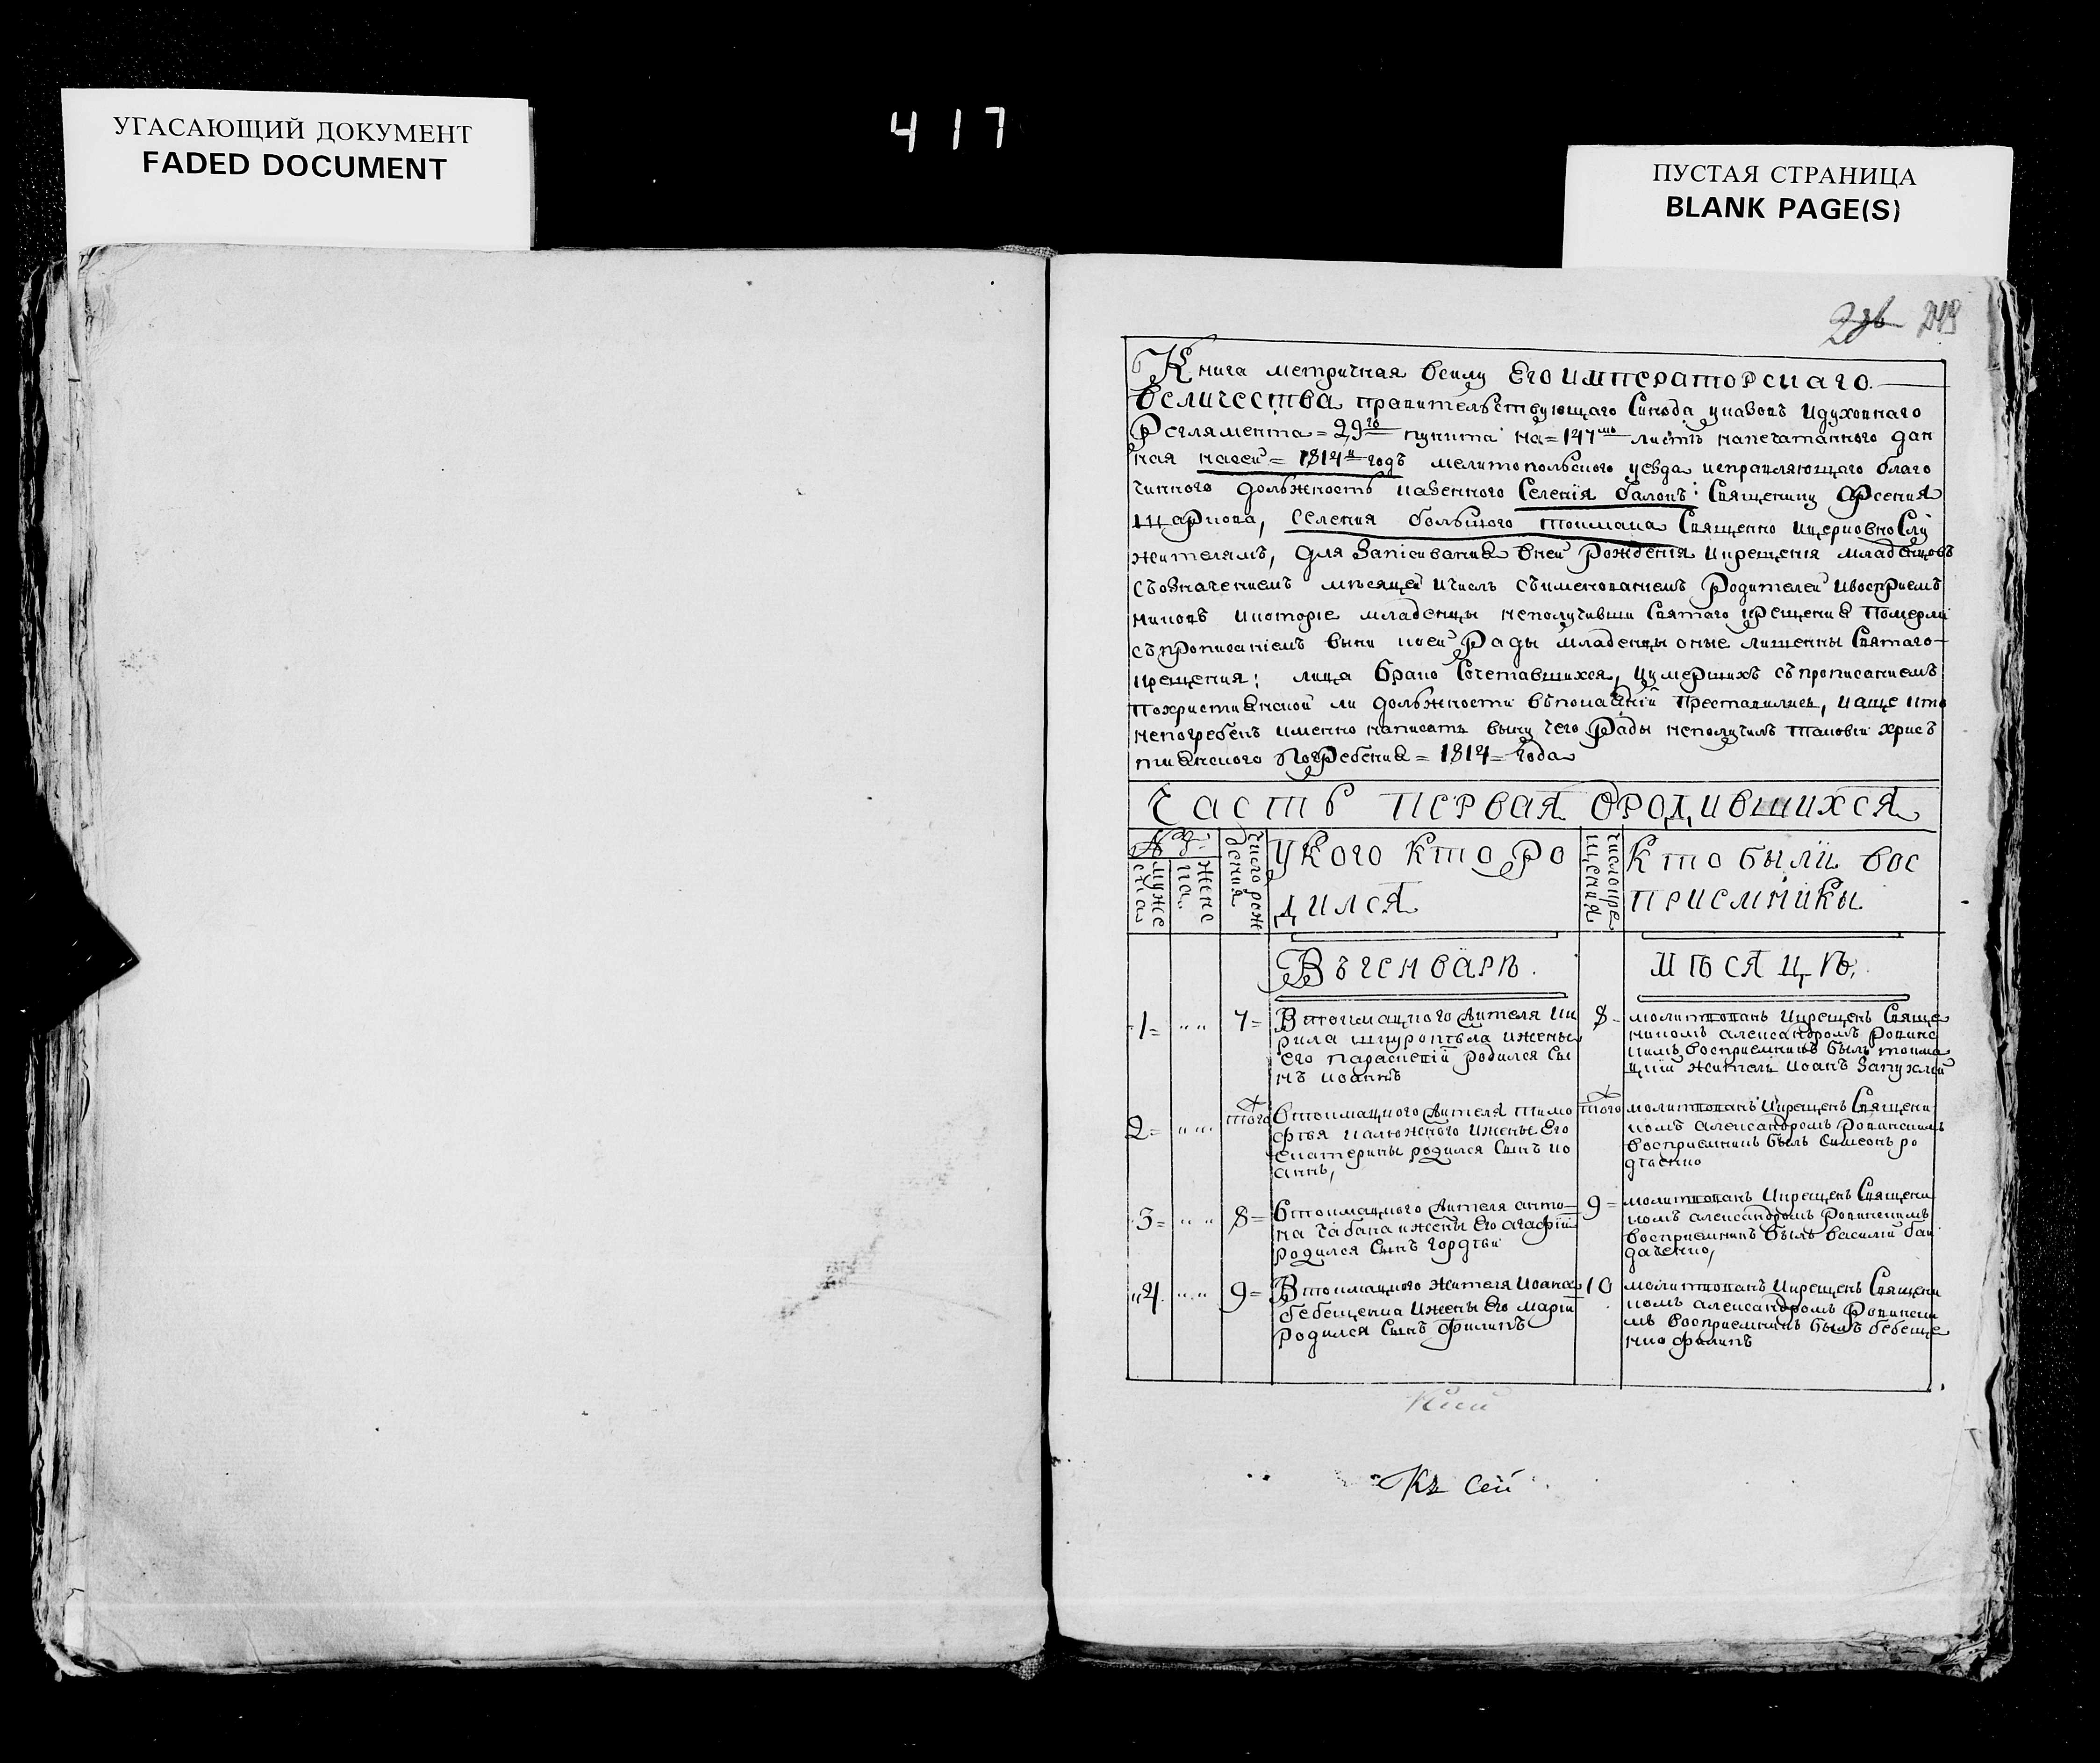 УГАСАЮЩИЙ ДОКУМЕНТ
FADED DOCUMENT
417
ПУСТАЯ СТРАНИЦА
BLANK PAGE(S)
249
Книга метричная всилу Его императорскаго
величества правительствующаго Синода указовъ идуховнаго
Регламента = 29го пункта на = 147мъ листѣ напечатанного дан
ная насей = 1814й годъ мелитопольского уезда исправляющаго благо
чинного должность казенного Селенія балокъ: Священику Арсения
селения большого токмака Священно ицерковно Слу
жителямъ, для Записивания вней рождения икрещения младенцовъ
Съозначениемъ мѣсяцей ичислъ съименованиемъ Родителей ивоспрiем
никовъ икоторiе младенцы неполучивши Святаго крещения Померли
съпрописанiемъ выни коей Рады младенцы оные лишенны Святаго
крещения: лица брако Сочетавшихся, иумершихъ съпрописаниемъ
похристианской ли должности въпокаянiи Преставились, иаще кто
непогребенъ именно написать выну чего Рады неполучилъ таковiй хрис
тианского погребения = 1814 = года
Часть первая ородившихся
№
муже
ска
женс
ка
число рож
дения
у кого кто ро
дился
число кре
щения
кто были вос
приемники
Въгенварѣ.
мѣсяцѣ.
1=
7=
Втокмацкого жителя Ки
рила шкуропѣла ижены
его параскевiй родился Сы
нъ иоаннъ
8
молитвованъ икрещенъ Свяще
никомъ александромъ ровинс
кимъ восприемникъ былъ токма
цкiй житель иоанъ Запухлiй
2=
того
втокмацкого жителя тимо
фѣя калюжного ижены Его
екатерины родился Сынъ ио
аннъ,
того
молитвованъ икрещенъ Священи
комъ александромъ ровинскимъ
восприемникъ былъ симеонъ ро
дченко
3=
8=
втокмацкого жителя анто
на чабана ижены Его агафiи
родился Сынъ гордѣй
9=
молитвованъ икрещенъ Священи
комъ александромъ ровинскимъ
восприемникъ былъ василiй бай
даченко,
4.
9=
Втокмацкого жителя иоана
бебещенка ижены Его марiи
родился Сынъ филипъ
10
молитвованъ икрещенъ Священи
комъ александромъ Ровински
мъ восприемникъ былъ бебеще
нко филипъ
Къ сей